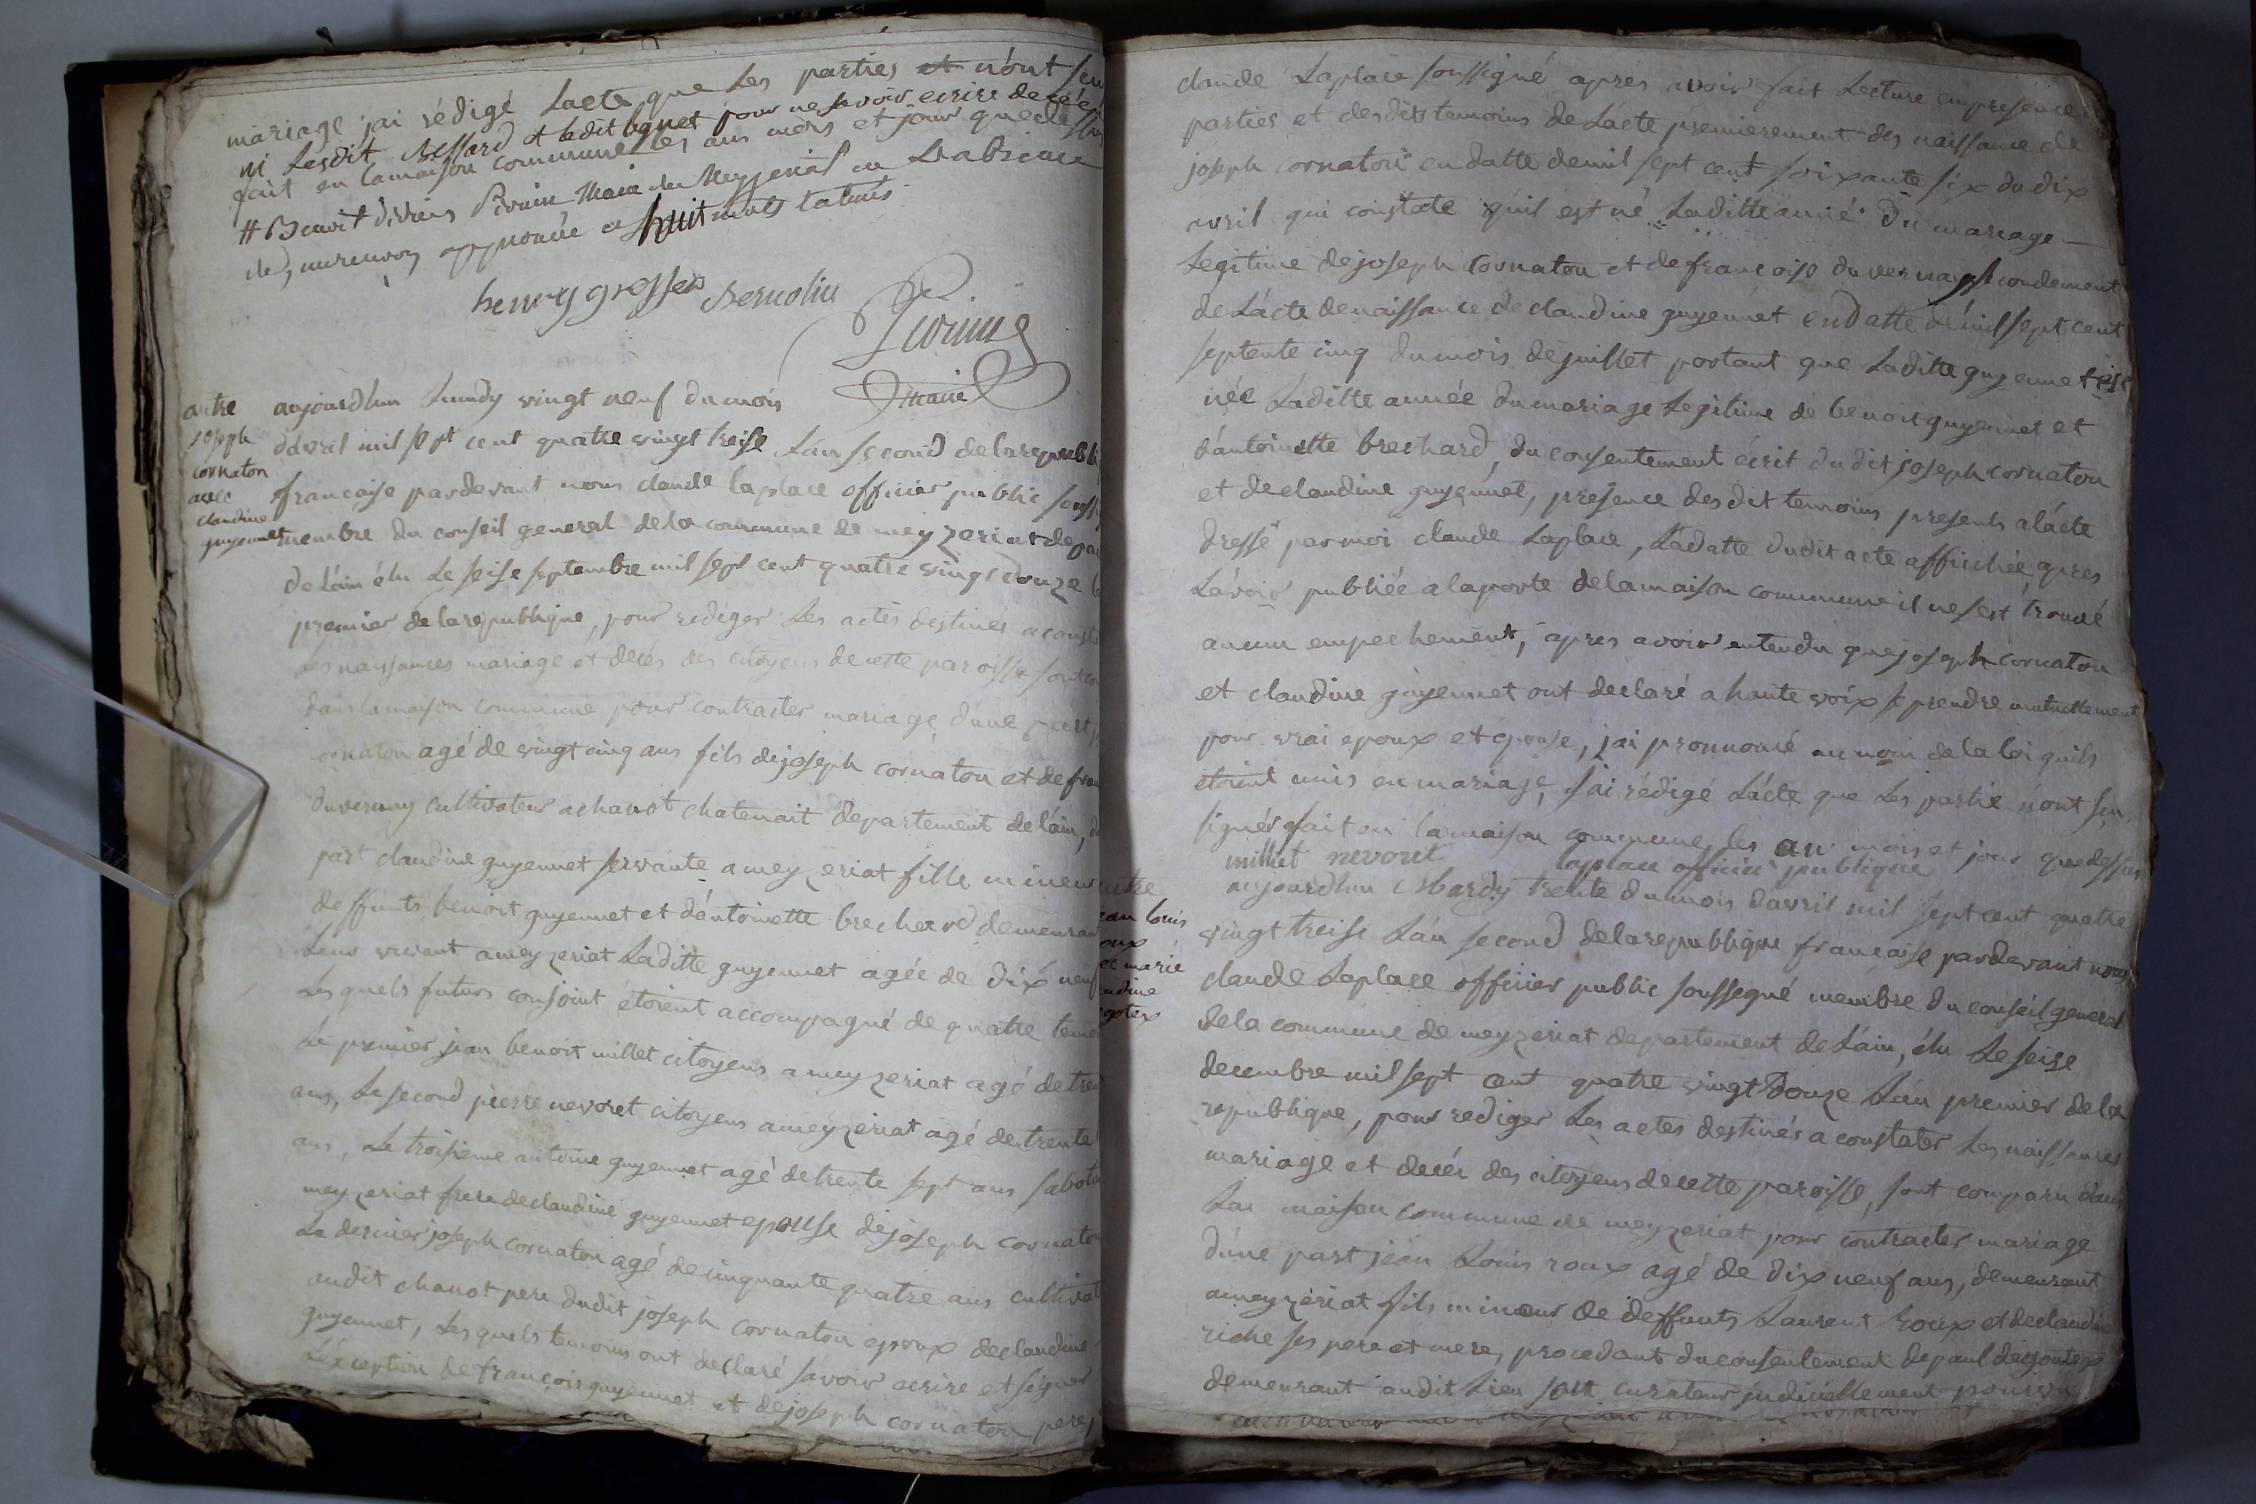 mariage j'ai rédigé Lacte que Les parties et n'ont scu
ni Lesdit et ledit pour ne savoir ecrire de
fait en lamaison commune les ans mois et jour que dessus
# Benoit Pivuin Maire de Meyzeriat en L'absence
de, approuvée et huit mots
henry grosset
maire
autre
joseph
cornaton
avec
claudine
guyennet
aujourdhuy Lundy vingt neuf du mois
davril mil sept cent quatre vingt treise Lan second de la republi
francaise pardevant nous claude laplace officier public souss
membre du conseil general de la commune de meyzeriat depar
de L'ain élu Le seise septembre mil sept cent quatre vingt douze
premier de la republique, pour rediger Les actes destinés a const
Les naissances mariage et décés des citoyens de cette paroisse sont
dans la maison commune pour contracter mariage d'une part
ornaton agé de vingt cinq ans fils de joseph cornaton et de fran
duvernay cultivateur a chanot chatenait departement de lain,
part claudine guyennet servante a meyzeriat fille mineur
deffunts benoit guyennet et d'antoinette brechard demeurant
Leur vivant a meyzeriat Laditte guyennet agée de dix neuf
Les quels futurs conjoint étoient accompagné de quatre temo
Le premier jean benoit millet citoyens a meyzeriat agé de tren
ans, Le second pierre nevoret citoyens a meyzeriat agé de trente
ans, Le troisieme antoine guyennet agé de trente sept ans sabotie
meyzeriat frere de claudine guyennet epouse de joseph cornaton
Le dernier joseph cornaton agé de cinquante quatre ans cultivat
audit chanot pere dudit joseph cornaton epoux de claudine
guyennet, Les quels temoins ont declaré savoir ecrire et signer
L'exception de françois guyennet et de joseph cornaton pere,
claude Laplace soussigné apres avoir fait Lecture en presence
parties et desdits temoins de L'acte premierement des naissance de
joseph cornaton en datte de mil sept cent soixante six du dix
avril qui constate quil est né Laditte année du mariage
Legitime de joseph Cornaton et de francoise duvernay secondement
de L'acte de naissance de claudine guyennet en datte de mil sept cent
septente cinq du mois de juillet portant que Laditte guyennet est
née Laditte année du mariage Legitime de benoit guyennet et
d'antoinette brechard, du consentement écrit dudit joseph cornaton
et de claudine guyennet, presence desdit temoins presents a lácte
dressé par moi claude Laplace, Ladatte dudit acte affichée apres
L'avoir publiée a laporte de la maison commune il ne sest trouvé
aucun empechement, apres avoir entendu que joseph cornaton
et claudine guyennet ont declaré a haute voix se prendre mutuellement
pour vrai epoux et épouse, j'ai prononcé au nom de la loi quils
étoient unis en mariage, j'ai rédigé L'ácte que Les partie n'ont scu
signés fait en lamaison commune les an mois et jour que dessus
millet nevoret laplace officier publique
autre
jean louis
roux
avec marie
aujourdhui Mardy trente du mois davril mil sept cent quatre
vingt treise L'an second de la republique francaise pardevant nous
claude Laplace officier public soussegné membre du conseil general
de la commune de meyzeriat departement de L'ain, élu Le seise
decembre mil sept cent quatre vingt douze L'an premier de la
republique, pour rediger Les actes destinés a constater Les naissances
mariage et decés des citoyens de cette paroisse, sont comparu dans
La maison commune de meyzeriat pour contracter mariage
d'une part jean Louis roux agé de dix neuf ans, demeurant
a meyzeriat fils mineur de deffunts Laurent Roux et de claudine
riche ses pere et mere, procedant du consentement de paul
demeurant audit Lieu son curateur judiciellement pourvu